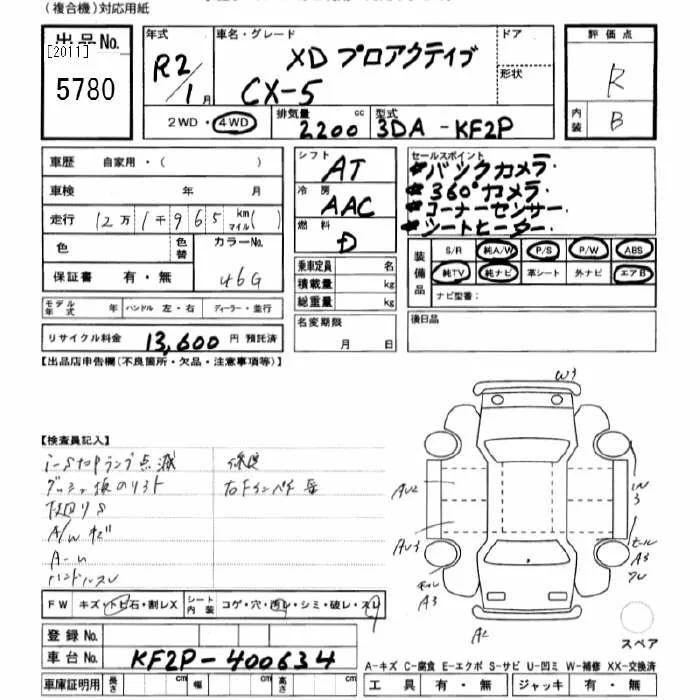 （複合機）対応用紙
出品No.
[2011]
5780
年式
R2/1月
車名・グレード
XD プロアクティブ
CX-5
ドア
形状
評価点
R
内装
B
2WD・4WD
排気量
2200cc
型式
3DA-KF2P
車歴 自家用・( )
車検 年 月
走行 12万1千965km マイル( )
色
色替
カラーNo.
46G
保証書 有・無
モデル年式 年 ハンドル 左・右 ディーラー・並行
リサイクル料金 13,600円 預託済
シフト
AT
冷房
AAC
燃料
D
乗車定員 名
積載量 kg
総重量 kg
名変期限
月 日
セールスポイント
バックカメラ
360°カメラ
コーナーセンサー
シートヒーター
装備品
S/R 純A/W P/S P/W ABS
純TV 純ナビ 革シート 外ナビ エアB
ナビ型番：
後日品
【出品店申告欄(不良箇所・欠品・注意事項等)】
【検査員記入】
i-stopランプ点滅
A/W キズ
FW キズ・トビ石・割レX
シート内装 コゲ・穴・汚レ・シミ・破レ・スレ
登録No.
車台No. KF2P-400634
車庫証明用 長さ cm 幅 cm 高さ cm
W3
AU2
AU3
A3
A3
A2
スペア
A-キズ C-腐食 E-エクボ S-サビ U-凹ミ W-補修 XX-交換済
工具 有・無 ジャッキ 有・無